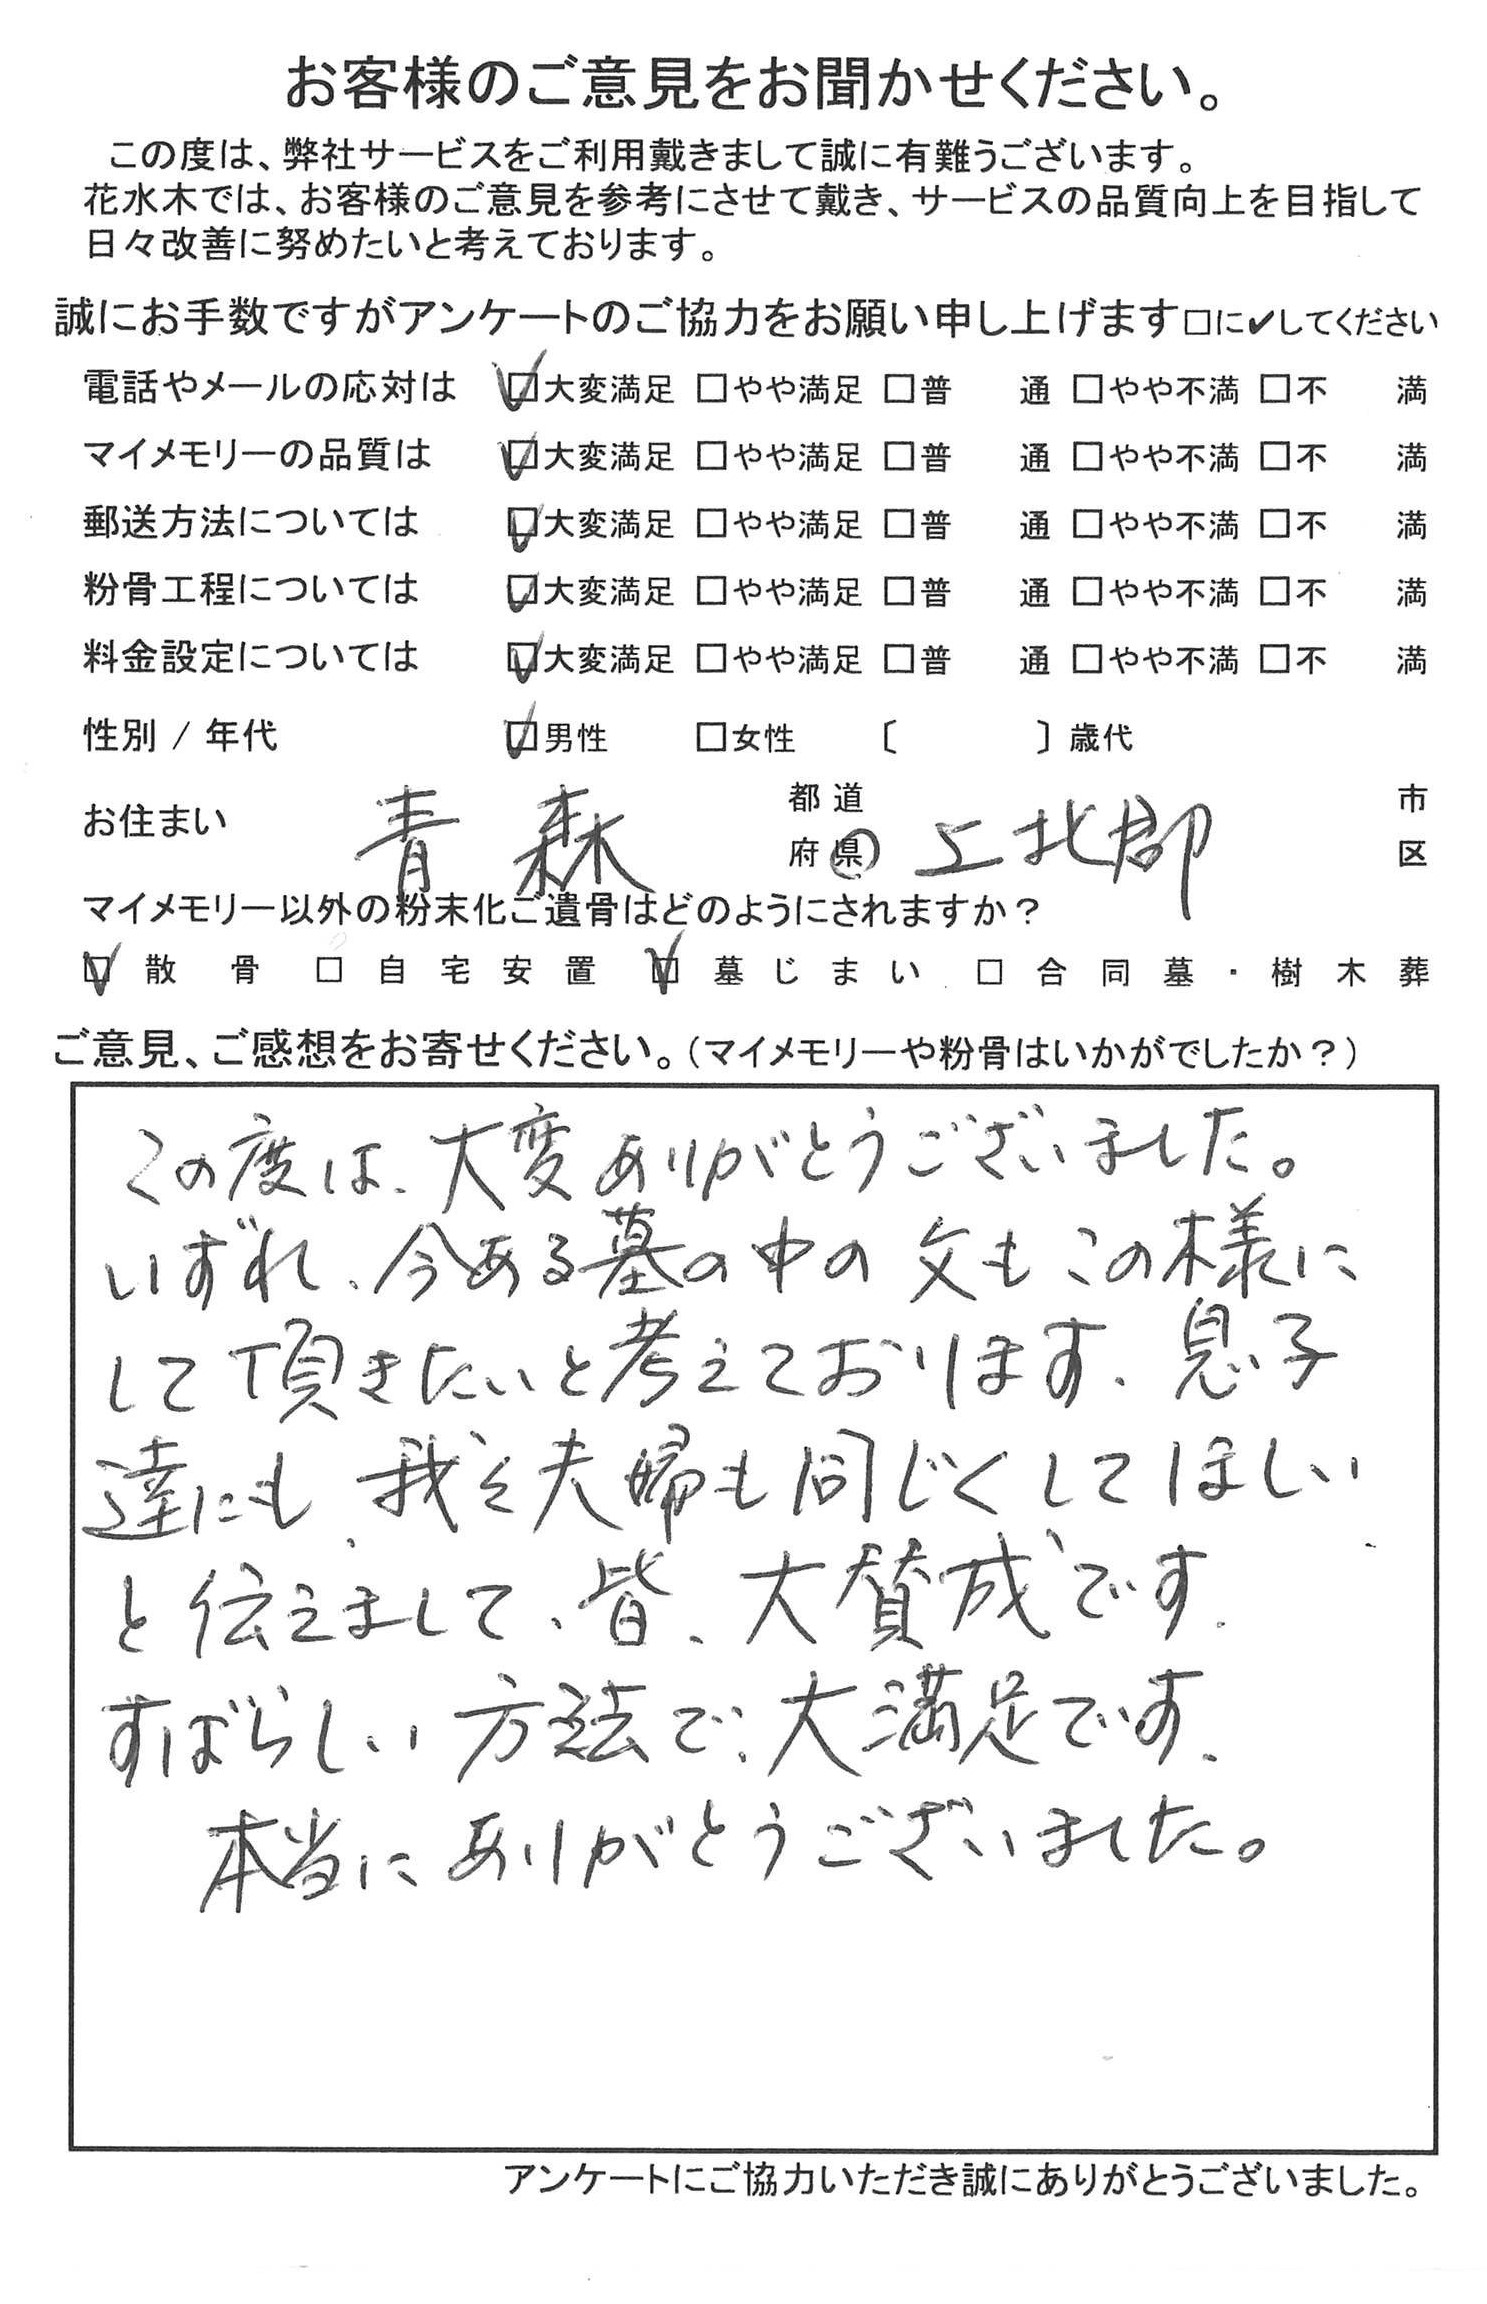 お客様のご意見をお聞かせください。
この度は、弊社サービスをご利用戴きまして誠に有難うございます。
花水木では、お客様のご意見を参考にさせて戴き、サービスの品質向上を目指して
日々改善に努めたいと考えております。
誠にお手数ですがアンケートのご協力をお願い申し上げます□に✔してください
電話やメールの応対は ☑大変満足 □やや満足 □普 通 □やや不満 □不 満
マイメモリーの品質は ☑大変満足 □やや満足 □普 通 □やや不満 □不 満
郵送方法については ☑大変満足 □やや満足 □普 通 □やや不満 □不 満
粉骨工程については ☑大変満足 □やや満足 □普 通 □やや不満 □不 満
料金設定については ☑大変満足 □やや満足 □普 通 □やや不満 □不 満
性別 / 年代 ☑男性 □女性 〔 〕歳代
お住まい 青森 都道府県 上北郡 市区
マイメモリー以外の粉末化ご遺骨はどのようにされますか？
☑散骨 □自宅安置 ☑墓じまい □合同墓・樹木葬
ご意見、ご感想をお寄せください。（マイメモリーや粉骨はいかがでしたか？）
この度は、大変ありがとうございました。
いずれ、今ある墓の中の父もこの様に
して頂きたいと考えております、息子
達にも、我々夫婦も同じくしてほしい
と伝えまして、皆、大賛成です、
すばらしい方法で、大満足です、
本当にありがとうございました。
アンケートにご協力いただき誠にありがとうございました。